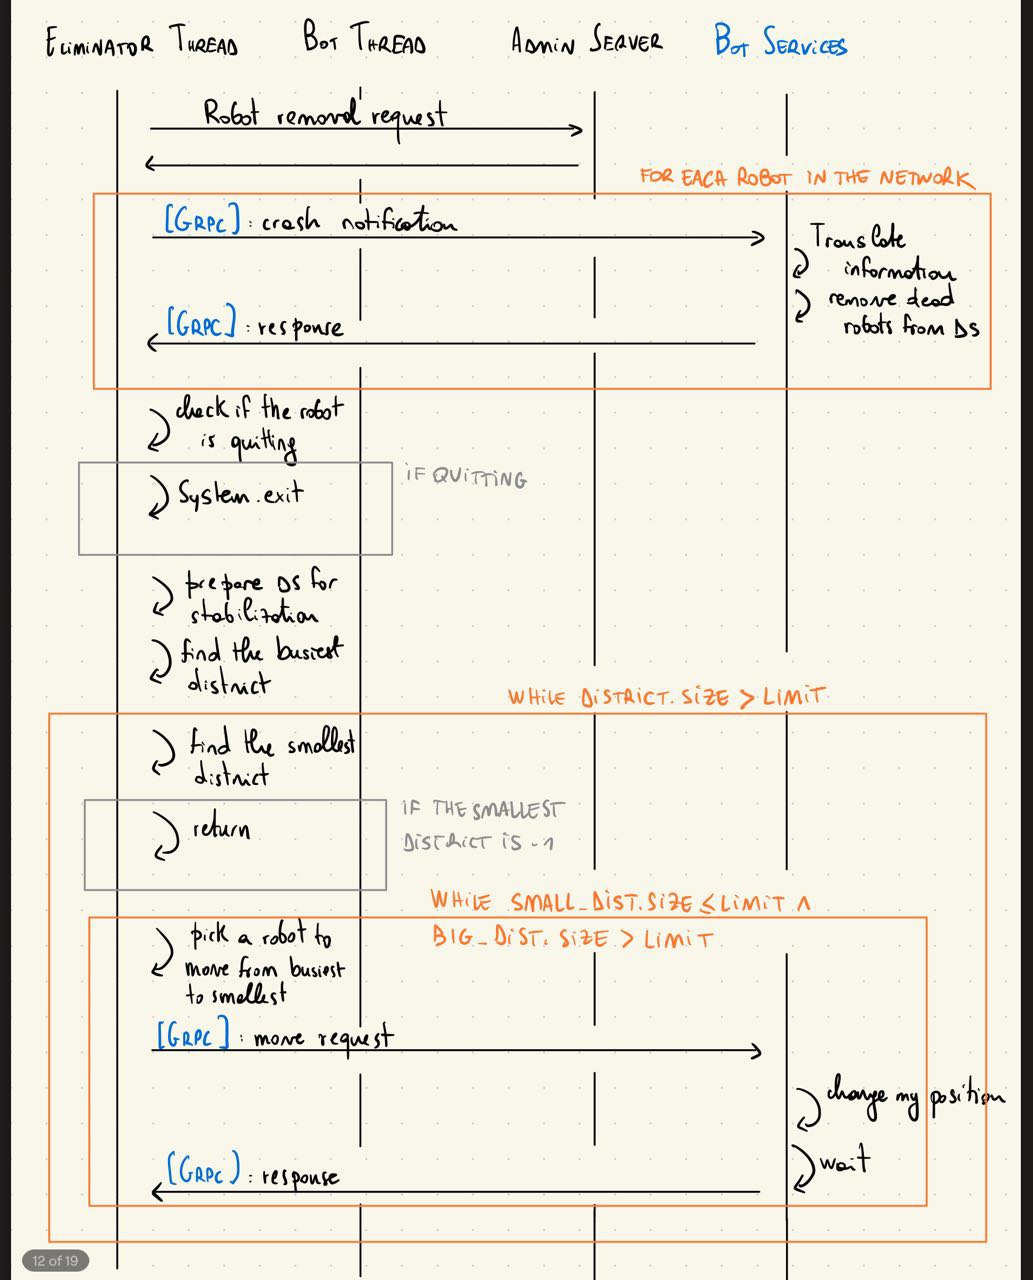 ELIMINATOR THREAD BOT THREAD ADMIN SERVER BOT SERVICES
Robot removal request
FOR EACH ROBOT IN THE NETWORK
[GRPC] : crash notification
Translate
information
remove dead
robots from DS
[GRPC] : response
check if the robot
is quitting
IF QUITTING
System.exit
prepare DS for
stabilization
find the busiest
district
WHILE DISTRICT.SIZE > LIMIT
find the smallest
district
IF THE SMALLEST
DISTRICT IS -1
return
WHILE SMALL_DIST.SIZE ≤ LIMIT ∧
BIG_DIST.SIZE > LIMIT
pick a robot to
move from busiest
to smallest
[GRPC] : move request
change my position
wait
[GRPC) : response
12 of 19